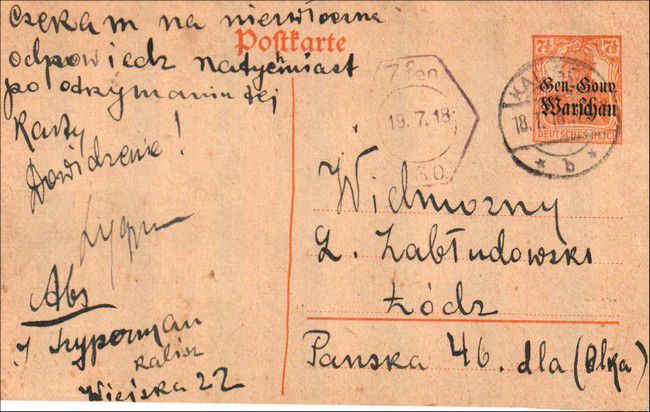 Czekam na niezwłoczne
odpowiedz natychmiast
po otrzymaniu tej
Karty
Dowidzenie!
Abs
J Szyperman
Kalisz
Wiejska 22
Postkarte
7 fen
19.7.18
7½ 7½
Gen.-Gouv.
Warschau
DEUTSCHES REICH
KALISCH
18.7
* b *
Wielmożny
L. Zabłudowski
Łódz
Panska 46. dla (Olka)